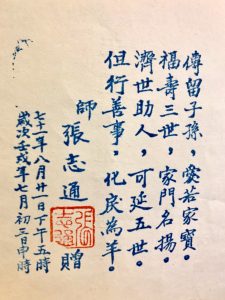 傳留子孫，愛若家寶。
福壽三世，家門名揚。
濟世助人，可延五世。
但行善事，化戾為羊。
師 張志通 贈
七十一年八月廿一日下午五時
歲次壬戌年七月初三日申時